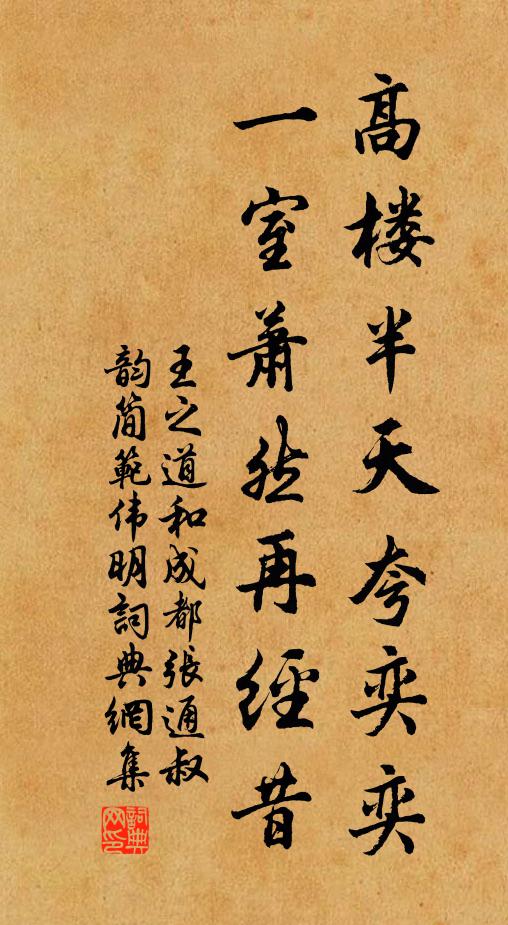 高楼半天夸奕奕
一室萧然再經昔
王之道和成都張通叔
韵简範伟明詞典網集
詞典
网印